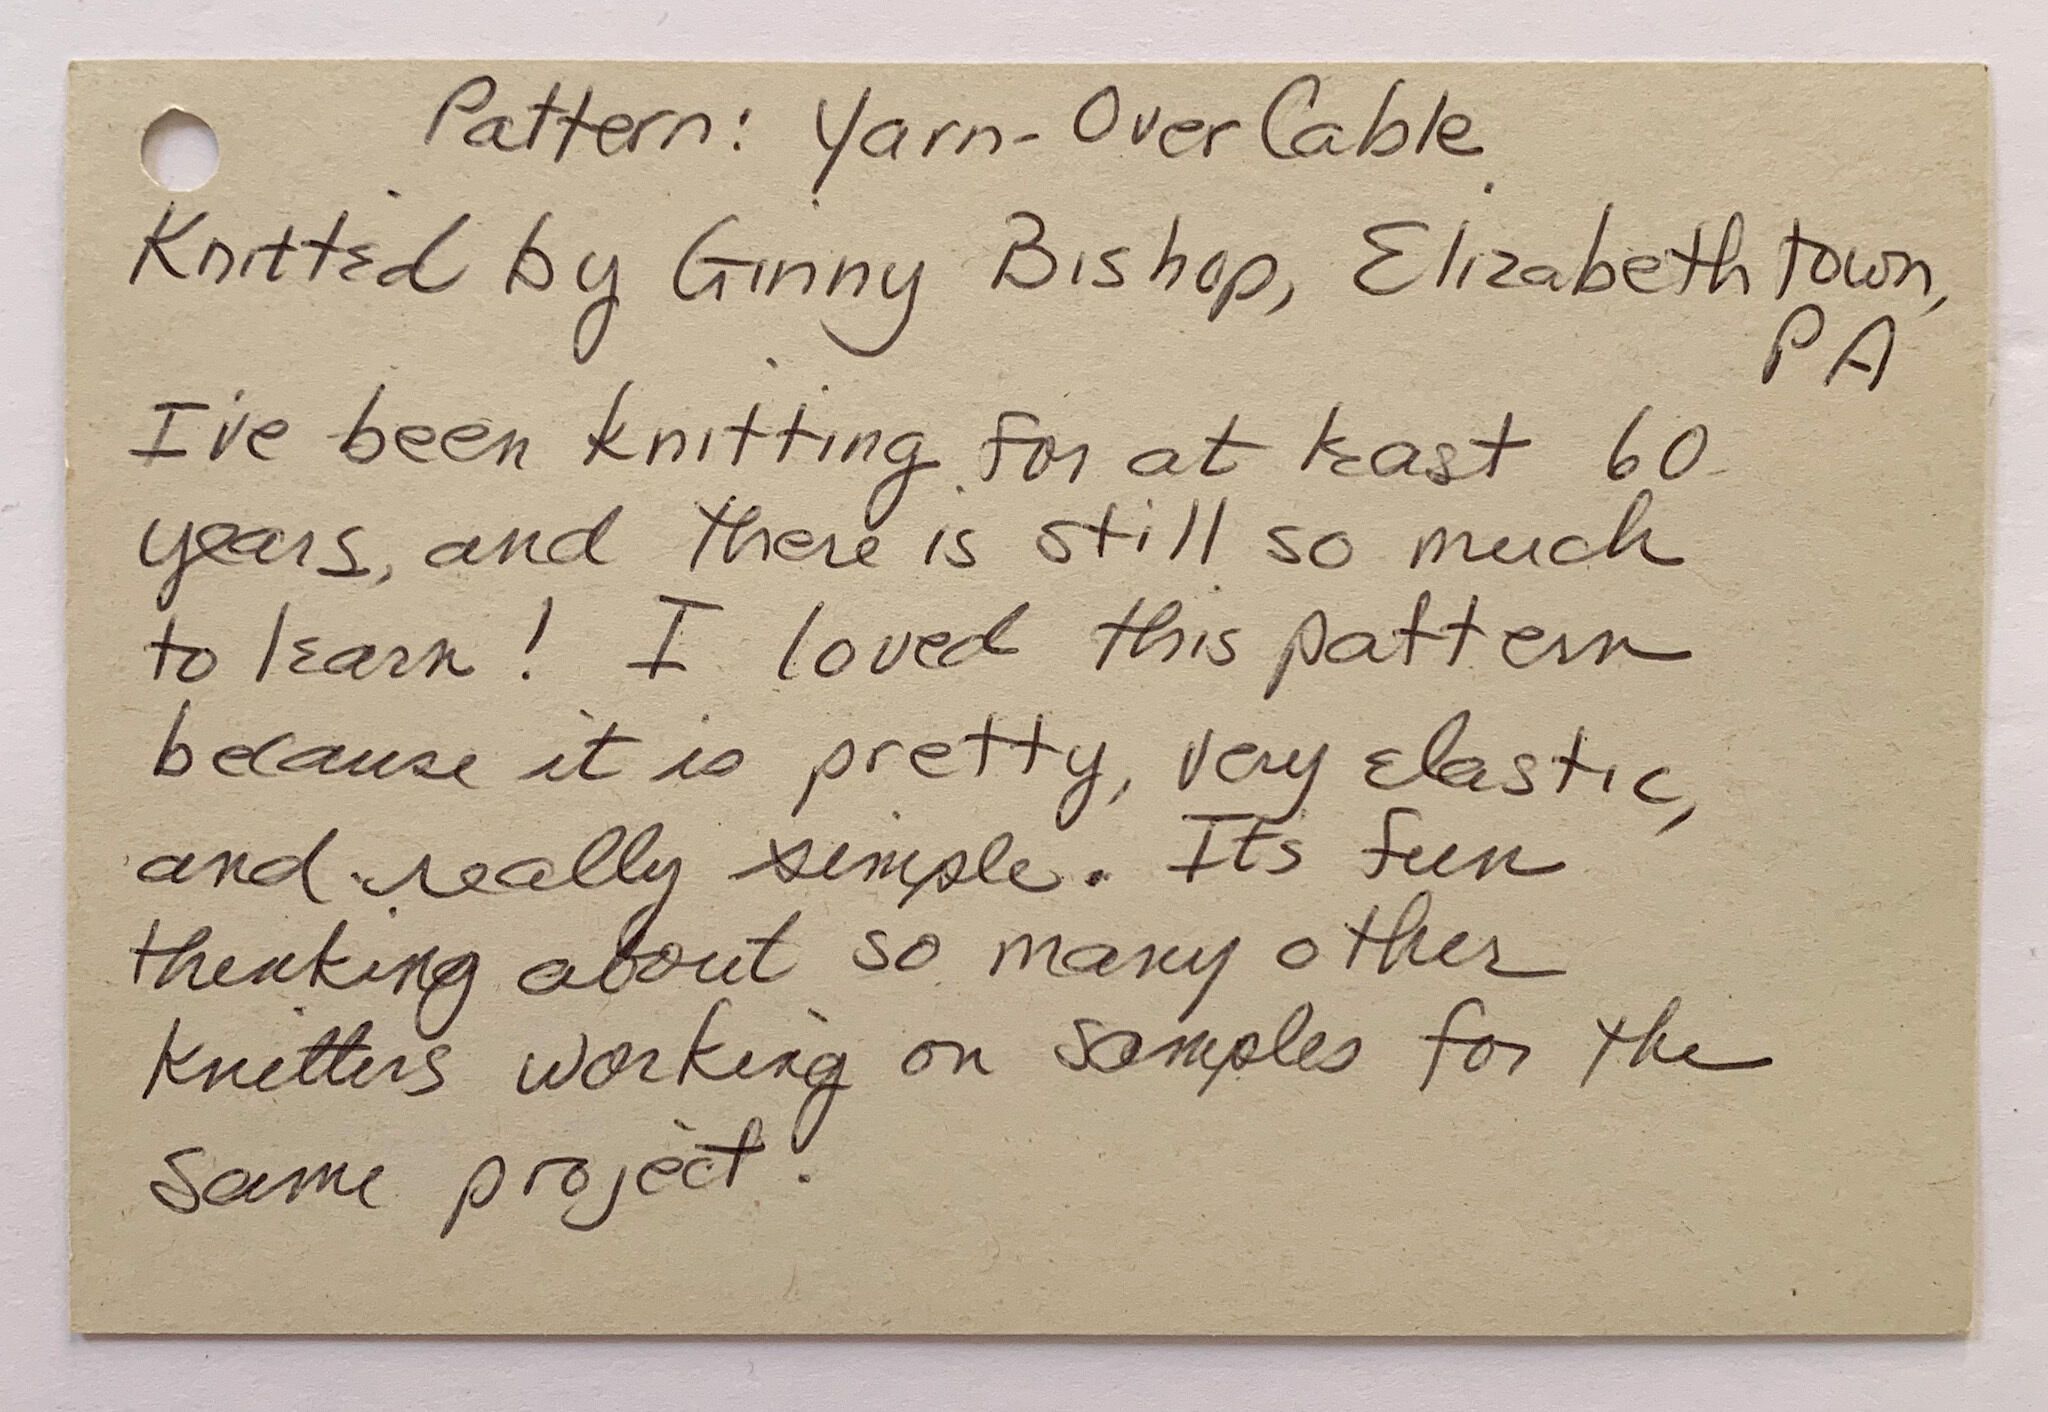 Pattern: Yarn-Over Cable
Knitted by Ginny Bishop, Elizabethtown,
PA
I've been knitting for at least 60
years, and there is still so much
to learn! I loved this pattern
because it is pretty, very elastic,
and really simple. Its fun
thinking about so many other
knitters working on samples for the
same project.